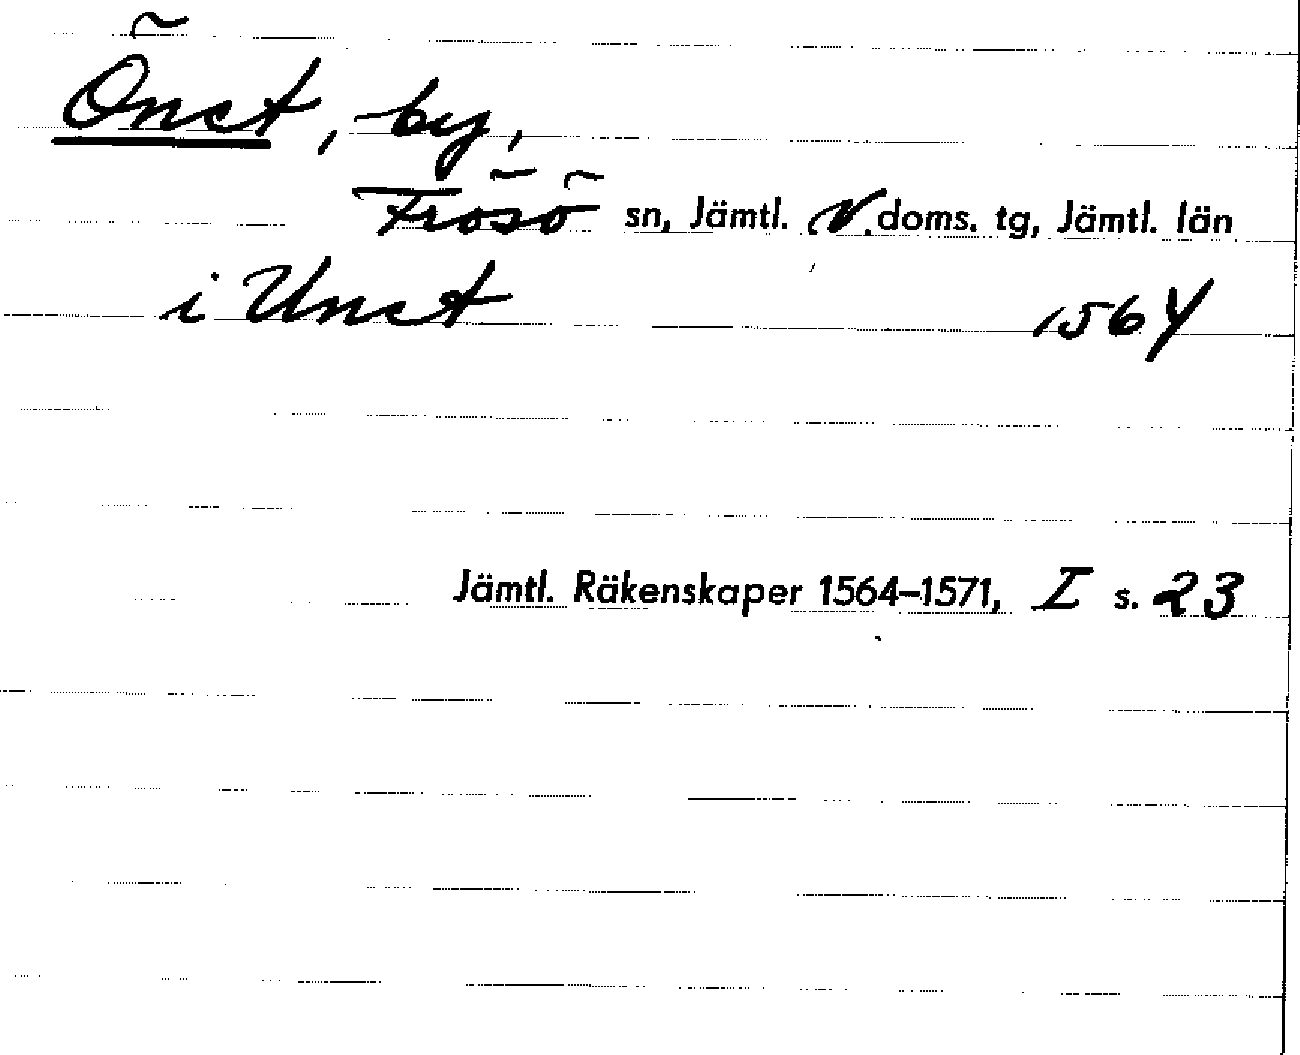 Önst, by,
Frösö sn, Jämtl. V. doms. tg, Jämtl. län
i Unst 1564
Jämtl. Räkenskaper 1564–1571, I s. 23